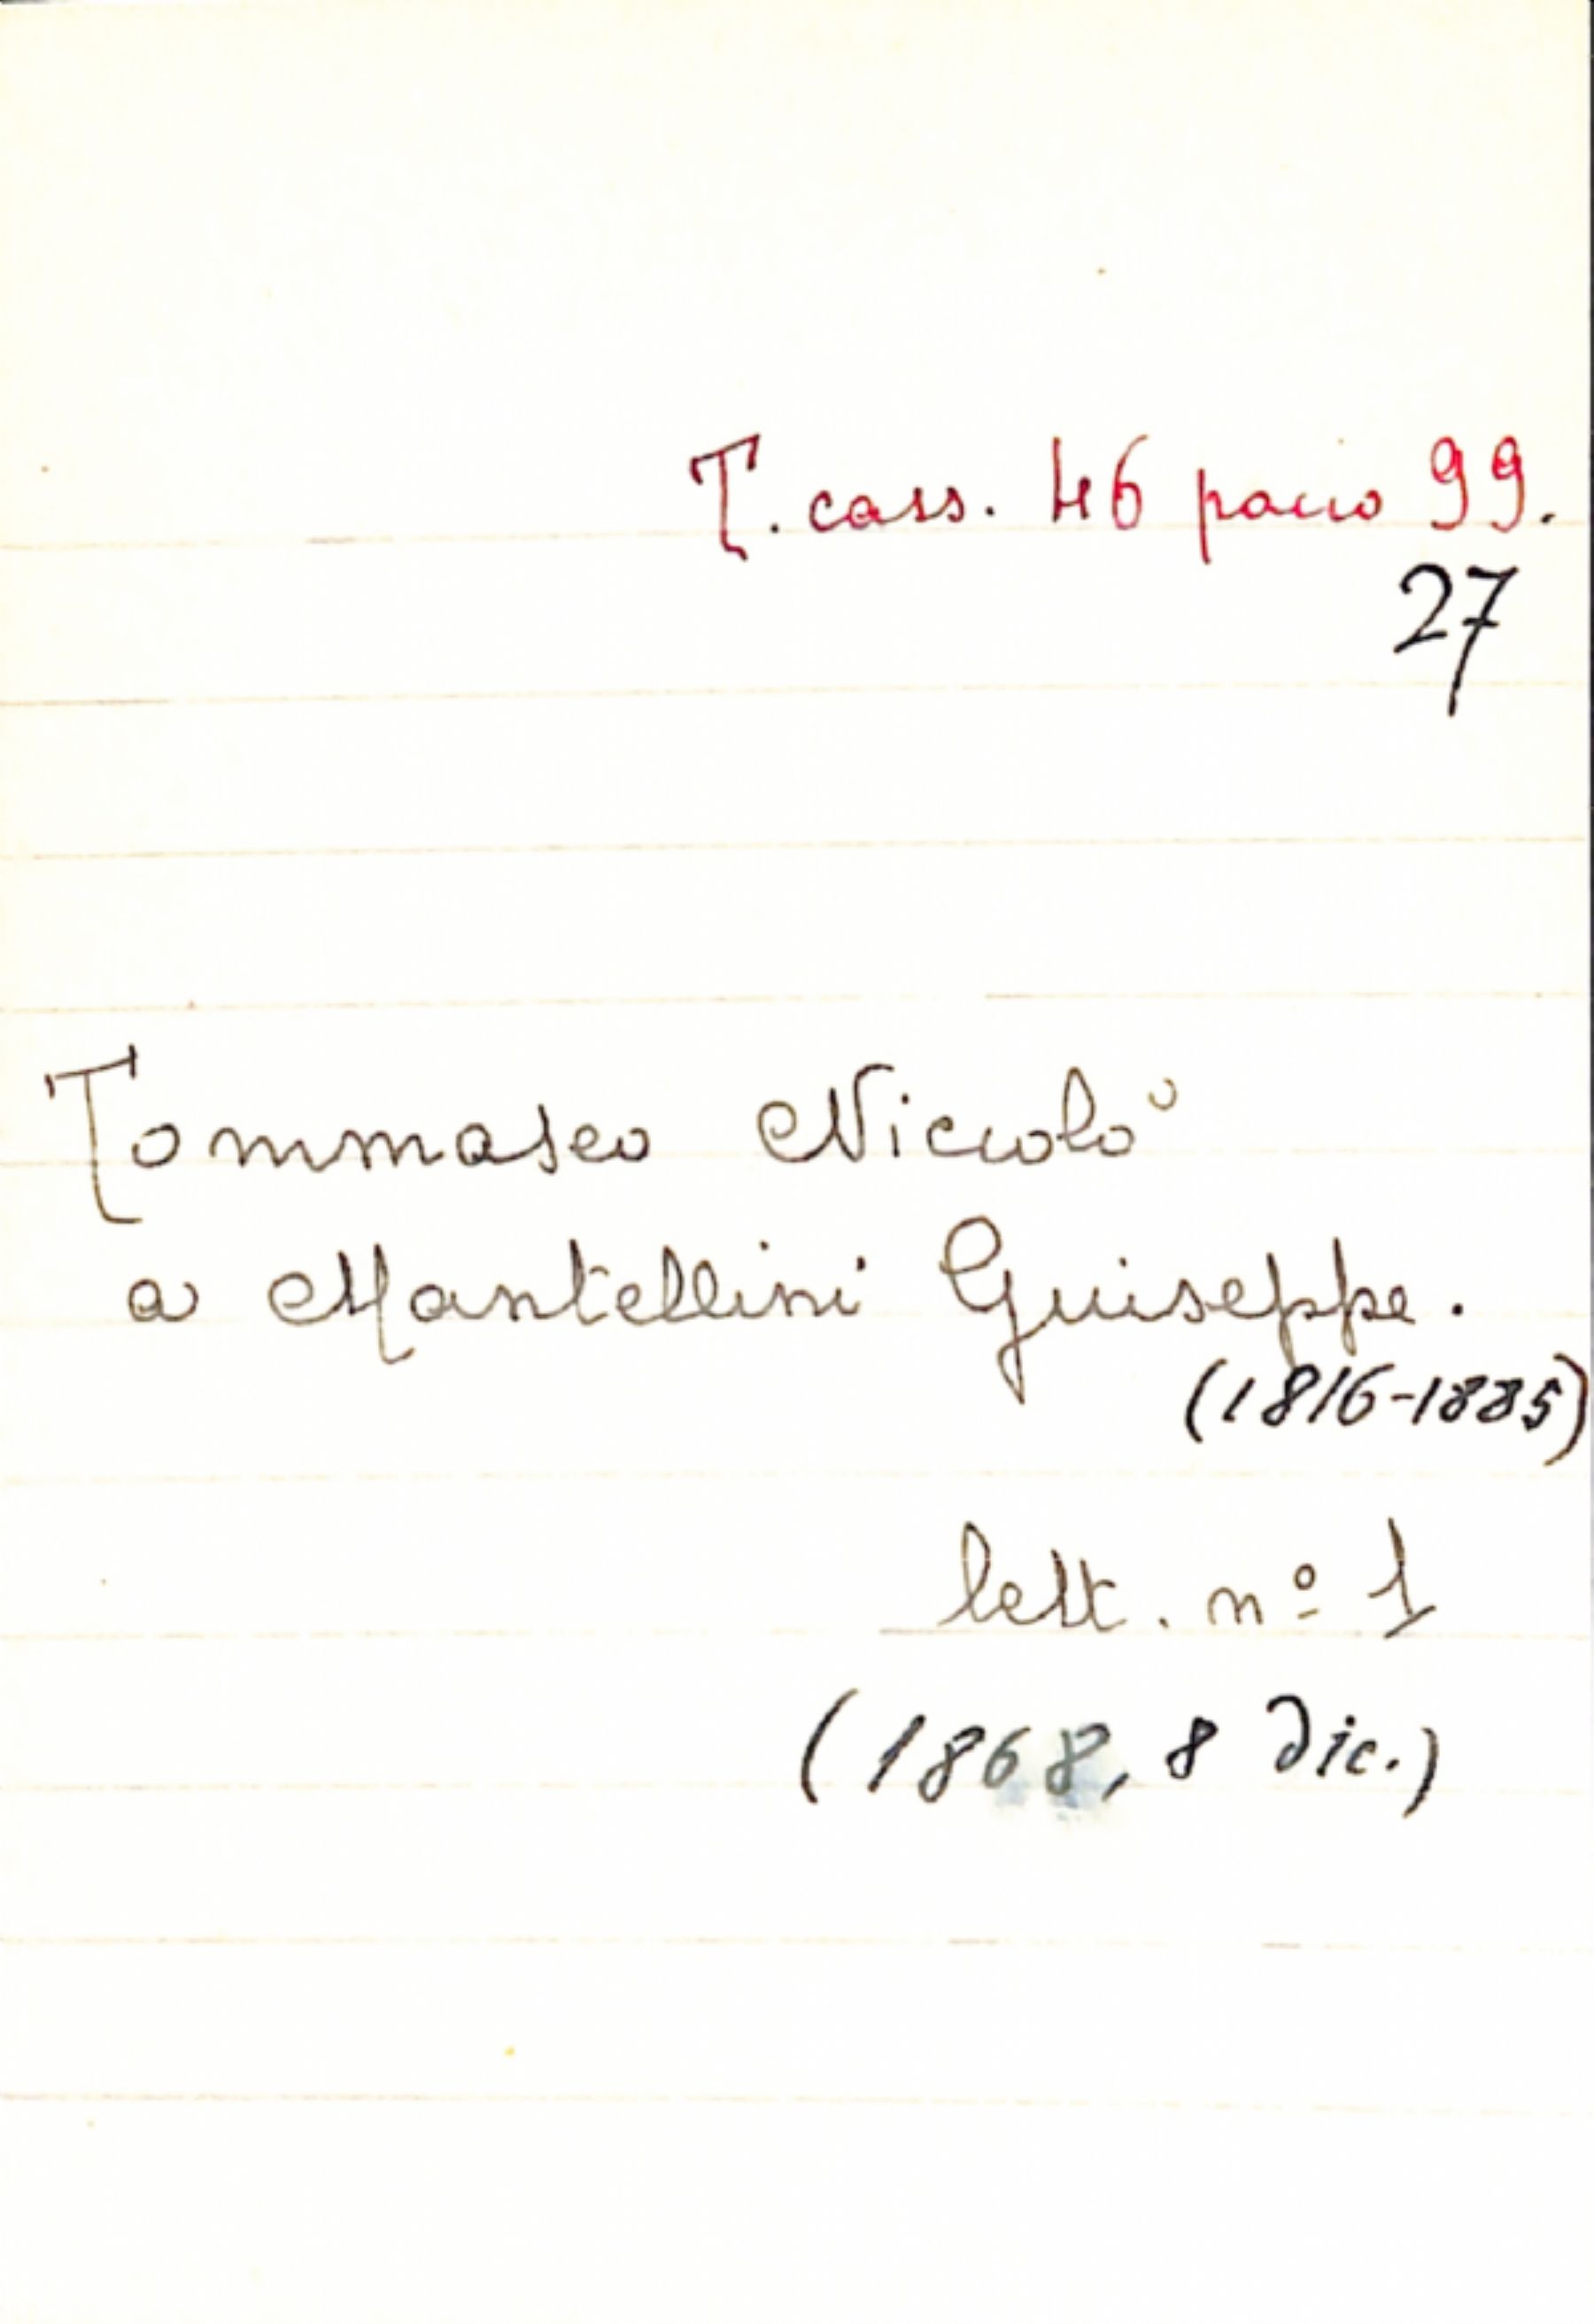 T. cass. 46 pacco 99.
27
Tommaseo Niccolò
a Mantellini Giuseppe.
(1816-1885)
lett. nº 1
(1868, 8 dic.)